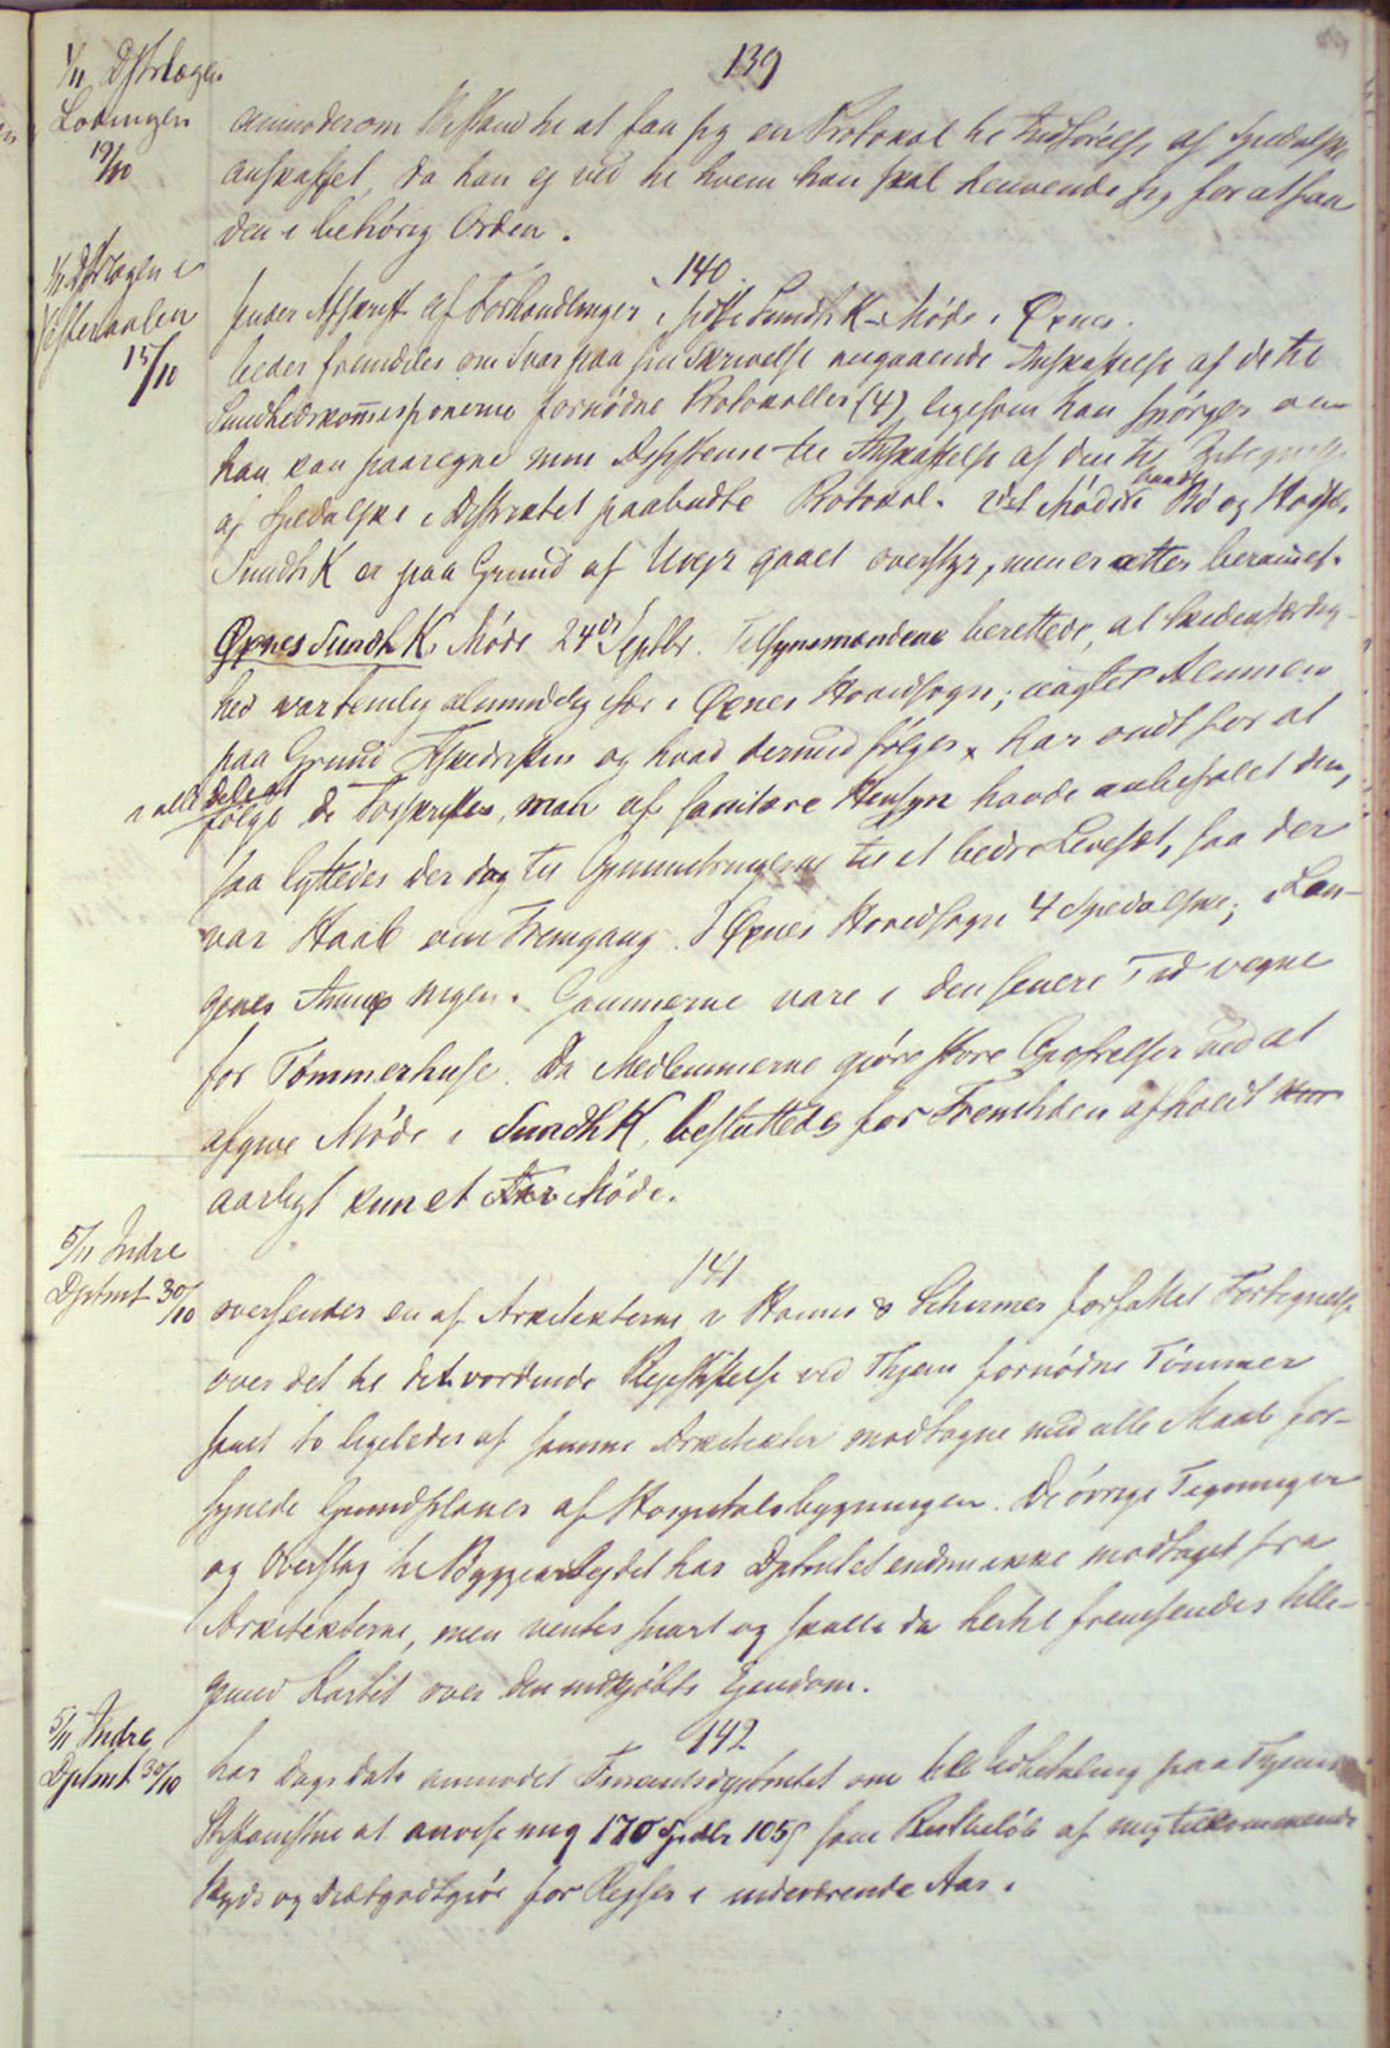 139
1/11 Dstrlægen
Lodingen
19/10
anmoder om Bistand til at faa sig en Protokol til Indførelse af Spedalske
anskaffet, da han ej ved til hvem han skal henvende sig for at faa
den i behörig Orden.
140.
1/11 Dstrlægen i
Vesteraalen
15/10
sender Afskrift af Forhandlinger i sidste SundhK-Møde i Øxnes.
beder fremdeles om Svar paa sin Skrivelse angaaende Anskaffelse af de til
Sundhedskommissionerne fornødne Protokoller (4), ligesom han spörger om
han kan paaregne min Assistence til Anskaffelse af den til
af Spedalske i Distriktet paabudte Protokol. Vel Mödet i baade Bö og Hadsel
SundhK er paa Grund af Uvejr gaaet overstyr, men er atter berammet.
Øxnes SundhK, Møde 24de Septbr. Tilsynsmændene berettede, at Skidenfærdig-
hed var temlig almindelig især i Øxnes Hovedsogn; uagtet Almuen
paa Grund Fiskedriften og hvad dermed fölger, har ondt for at
i alle Dele at
fölge de Forskrifter, man af sanitære Hensyn havde anbefalet dem,
saa lyttedes der dog til Opmuntringerne til et bedre Levesæt, saa der
var Haab om Fremgang. I Øxnes Hovedsogn 4 Spedalske; i Lan-
genes Annex ingen. Gammerne vare i den senere Tid vegne
for Tømmerhuse. Da Medlemmerne gjöre store Opofrelser ved at
afgive Møde i SundhK, besluttedes for Fremtiden afholdt
aarligt kun et Møde.
141
5/11 Indre
Dptmt 30/10
oversender en af Arkitekterne v Hanno & Schirmer forfattet Fortegnelse
over det til det vordende Plejestiftelse ved Thjem fornødne Tömmer
samt to ligeledes af samme Arkitekter modtagne med alle Maal for-
synede Grundplaner af Hospitalsbygningen. De övrige Tegninger
og Overslag til Byggearbejdet har Dptmtet endnu ikke modtaget fra
Arkitekterne, men ventes snart og skulle da hertil fremsendes tille-
gemed Kartet over den indkjöbte Ejendom.
142
5/11 Indre
Dptmt 30/10
har Dags Dato anmodet Finantsdptmtet om till Udbetaling paa Thjems
Stiftamtstue at anvise mig 170 Spdlr 105 s som Restbeløb af mig tilkommende
Skyds og Diætgodtgjör for Rejser i indeværende Aar.